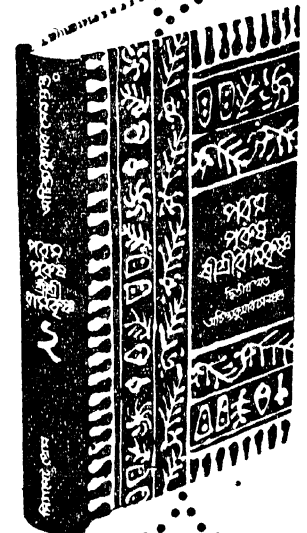 অচিন্ত্যকুমার সেনগুপ্ত
পরম
পুরুষ
শ্রীশ্রী
রামকৃষ্ণ
২
সিগনেট প্রেস
পরম
পুরুষ
শ্রীশ্রীরামকৃষ্ণ
দ্বিতীয় খণ্ড
অচিন্ত্যকুমার সেনগুপ্ত